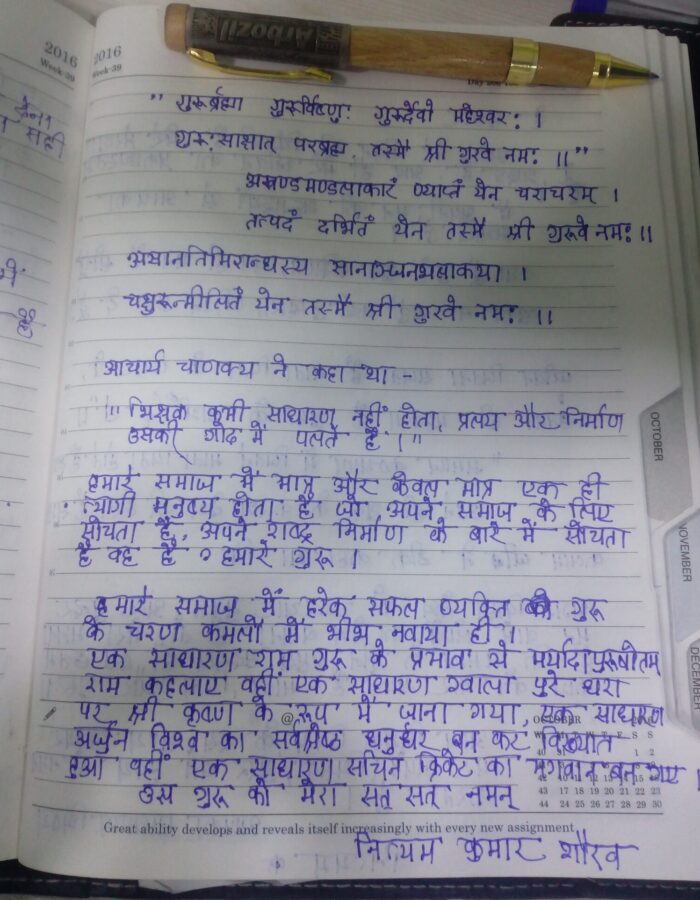 2016
Week-39
2016
Week-39
Arbozil
" गुरुर्ब्रह्मा गुरुर्विष्णुः गुरुर्देवो महेश्वरः ।
गुरुःसाक्षात् परब्रह्म तस्मै श्री गुरवे नमः ।।"
अखण्डमण्डलाकारं व्याप्तं येन चराचरम् ।
तत्पदं दर्शितं येन तस्मै श्री गुरूवे नमः ।।
अज्ञानतिमिरान्धस्य ज्ञानाञ्जनशलाकया ।
चक्षुरून्मीलितं येन तस्मै श्री गुरवे नमः ।।
आचार्य चाणक्य ने कहा था -
"शिक्षक कभी साधारण नहीं होता, प्रलय और निर्माण
उसकी गोद में पलते है ।"
हमारे समाज में मात्र और केवल मात्र एक ही
त्यागी मनुष्य होता है जो अपने समाज के लिए
सोचता है, अपने राष्ट्र निर्माण के बारे में सोचता
है वह है हमारे गुरू ।
हमारे समाज में हरेक सफल व्यक्ति को गुरू
के चरण कमलों में शीश नवाया ही ।
एक साधारण राम गुरू के प्रभाव से मर्यादा पुरूषोतम
राम कहलाए वहीं एक साधारण ग्वाला पुरे धरा
पर श्री कृष्ण के रूप में जाना गया, एक साधारण
अर्जुन विश्व का सर्वश्रेष्ठ धनुर्धर बन कर विख्यात
हुआ वहीं एक साधारण सचिन क्रिकेट का भगवान बन गए ।
उस गुरू को मेरा सत् सत् नमन्
OCTOBER
NOVEMBER
DECEMBER
OCTOBER
43 17 18 19 20 21 22 23
44 24 25 26 27 28 29 30
Great ability develops and reveals itself increasingly with every new assignment
नित्यम कुमार शौरव